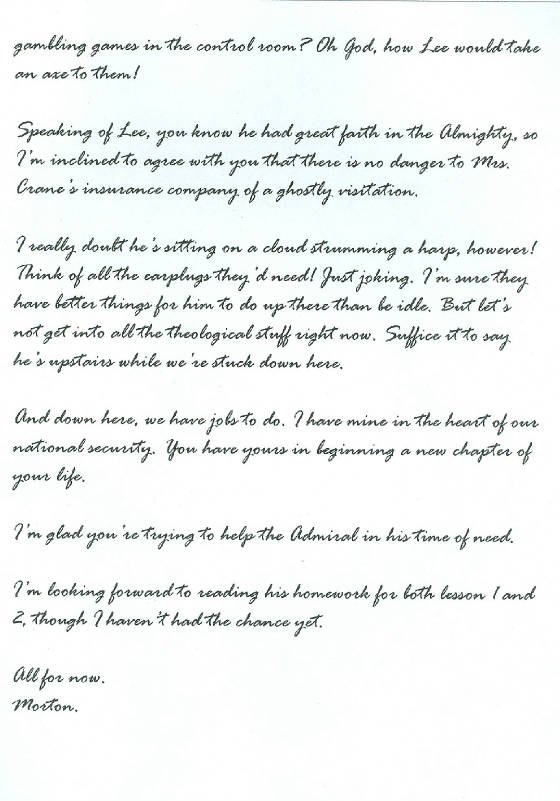 gambling games in the control room? Oh God, how Lee would take
an axe to them!
Speaking of Lee, you know he had great faith in the Almighty, so
I'm inclined to agree with you that there is no danger to Mrs.
Crane's insurance company of a ghostly visitation.
I really doubt he's sitting on a cloud strumming a harp, however!
Think of all the earplugs they'd need! Just joking. I'm sure they
have better things for him to do up there than be idle. But let's
not get into all the theological stuff right now. Suffice it to say
he's upstairs while we're stuck down here.
And down here, we have jobs to do. I have mine in the heart of our
national security. You have yours in beginning a new chapter of
your life.
I'm glad you're trying to help the Admiral in his time of need.
I'm looking forward to reading his homework for both lesson 1 and
2, though I haven't had the chance yet.
All for now.
Morton.